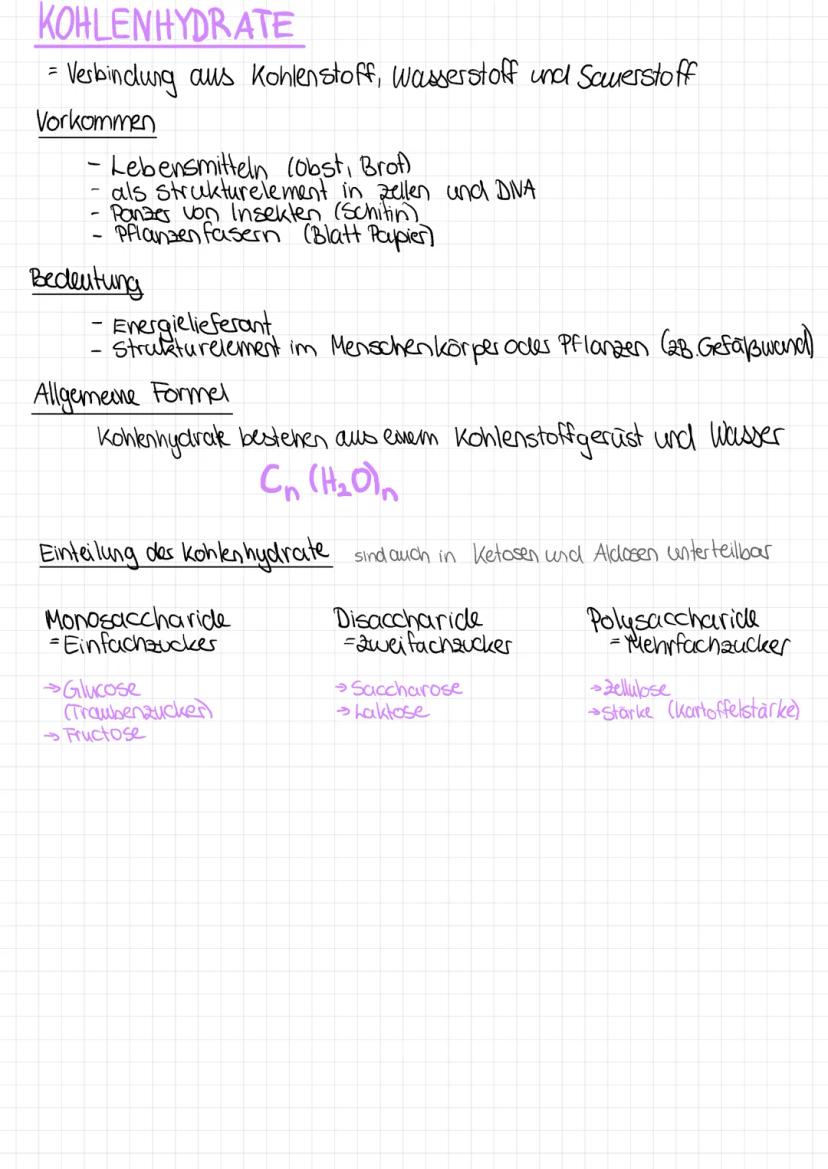 KOHLENHYDRATE
= Verbindung aus Kohlenstoff, Wasserstoff und Sauerstoff
Vorkommen
- Lebensmitteln (Obst, Brot)
- als Strukturelement in Zellen und DNA
- Panzer von Insekten (Schitin)
- Pflanzenfasern (Blatt Papier)
Bedeutung
- Energielieferant
- Strukturelement im Menschenkörper oder Pflanzen (zB. Gefäßwand)
Allgemeine Formel
Kohlenhydrate bestehen aus einem Kohlenstoffgerüst und Wasser
Cₙ (H₂O)ₙ
Einteilung der Kohlenhydrate sind auch in Ketosen und Aldosen unterteilbar
Monosaccharide Disaccharide Polysaccharide
= Einfachzucker = Zweifachzucker = Mehrfachzucker
→ Glucose → Saccharose → Zellulose
(Traubenzucker) → Laktose → Stärke (Kartoffelstärke)
→ Fructose